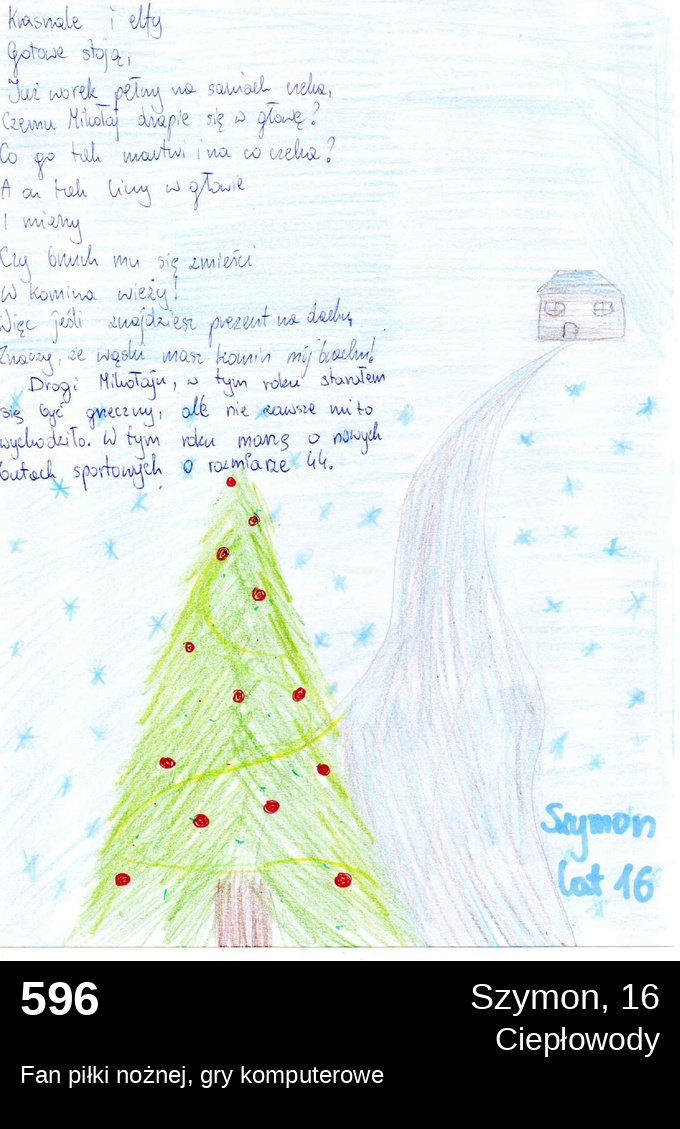 Krasnale i elfy
Gotowe stoją,
Już worek pełny na saniach czeka,
Czemu Mikołaj drapie się w głowę?
Co go tak martwi i na co czeka?
A on tak liczy w głowie
I mierzy
Czy brzuch mu się zmieści
W komina wieży!
Więc jeśli znajdziesz prezent na dachu,
Znaczy, że wąski masz komin mój brachu!
Drogi Mikołaju, w tym roku starałem
się być grzeczny, ale nie zawsze mi to
wychodziło. W tym roku marzę o nowych
butach sportowych o rozmiarze 44.
Szymon
lat 16
596
Szymon, 16
Ciepłowody
Fan piłki nożnej, gry komputerowe